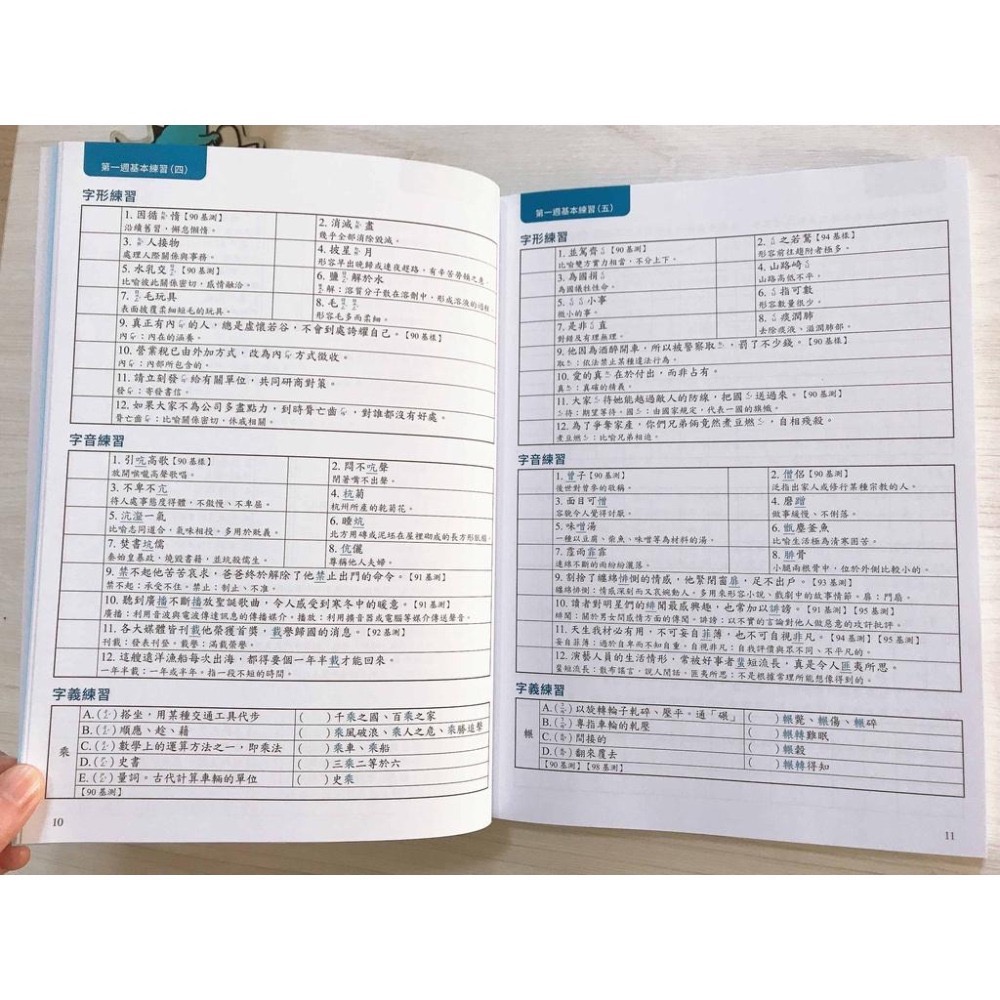 第一週基本練習(四)
字形練習
1. 因循 惰【90基測】
沿續舊習,懈怠懶惰。
2. 消滅 盡
幾乎全部消除毀滅。
3. 人接物
處理人際關係與事務。
4. 披星 月
形容早出晚歸或連夜趕路,有辛苦勞頓之意。
5. 水乳交 【90基測】
比喻彼此關係密切,感情融洽。
6. 鹽 解於水
解:溶質分子散在溶劑中,形成溶液的過程
7. 毛玩具
表面披覆柔細短毛的玩具。
8. 毛
形容毛多而柔細。
9. 真正有內 的人,總是虛懷若谷,不會到處誇耀自己。【90基樣】
內 :內在的涵養。
10. 營業稅已由外加方式,改為內 方式徵收。
內 :內部所包含的。
11. 請立刻發 給有關單位,共同研商對策。
發 :寄發書信。
12. 如果大家不為公司多盡點力,到時脣亡齒 ,對誰都沒有好處。
脣亡齒 :比喻關係密切,休戚相關。
字音練習
1. 引吭高歌【90基樣】
放開喉嚨高聲歌唱。
2. 悶不吭聲
閉著嘴不出聲。
3. 不卑不亢
待人處事態度得體,不傲慢、不卑屈。
4. 杭菊
杭州所產的乾菊花。
5. 沆瀣一氣
比喻志同道合,氣味相投。多用於貶義。
6. 睡炕
7. 焚書坑儒
秦始皇暴政,燒毀書籍,並坑殺儒生。
8. 伉儷
尊稱他人夫婦。
9. 禁不起他苦苦哀求,爸爸終於解除了他禁止出門的命令。【91基測】
禁不起:承受不住。禁止:制止、不准。
10. 聽到廣播不斷播放聖誕歌曲,令人感受到寒冬中的暖意。【91基測】
廣播:利用音波與電波傳達訊息的傳播媒介。播放:利用播音器或電腦等媒介傳送聲音。
11. 各大媒體皆刊載他榮獲首獎,載譽歸國的消息。【92基測】
刊載:發表刊登。載譽:滿載榮譽。
12. 這艘遠洋漁船每次出海,都得要個一年半載才能回來。
一年半載:一年或半年。指一段不短的時間。
字義練習
乘
A.( )搭坐,用某種交通工具代步
( )千乘之國、百乘之家
B.( )順應、趁、藉
( )乘風破浪、乘人之危、乘勝追擊
C.( )數學上的運算方法之一,即乘法
( )乘車、乘船
D.( )史書
( )三乘二等於六
E.( )量詞。古代計算車輛的單位
( )史乘
【90基測】
10
第一週基本練習(五)
字形練習
1. 並駕齊 【90基測】
比喻雙方實力相當,不分上下。
2. 之若鶩【94基樣】
形容前往趨附者極多。
3. 為國捐
為國犧牲性命。
4. 山路崎
山路高低不平。
5. 小事
微小的事。
6. 指可數
形容數量很少。
7. 是非 直
對錯及有理無理。
8. 痰潤肺
去除痰液、滋潤肺部。
9. 他因為酒醉開車,所以被警察取 ,罰了不少錢。【90基樣】
取 :依法禁止某種違法行為。
10. 愛的真 在於付出,而非占有。
真 :真確的精義。
11. 大家 待她能越過敵人的防線,把國 送過來。【90基測】
待:期望等待。國 :由國家規定,代表一國的旗幟。
12. 為了爭奪家產,你們兄弟倆竟然煮豆燃 ,自相殘殺。
煮豆燃 :比喻兄弟相迫。
字音練習
1. 曾子【90基測】
後世對曾參的敬稱。
2. 僧侶【90基測】
泛指出家人或修行某種宗教的人。
3. 面目可憎
容貌令人覺得討厭。
4. 磨蹭
做事緩慢、不俐落。
5. 味噌湯
一種以豆腐、柴魚、味噌等為材料的湯。
6. 甑塵釜魚
比喻生活極為清寒困苦。
7. 霪雨霏霏
連綿不斷的雨紛紛灑落。
8. 腓骨
小腿兩根骨中,位於外側比較小的。
9. 割捨了纏綿悱惻的情感,他緊閉窗扉,足不出戶。【93基測】
纏綿悱惻:情感深刻而又哀婉動人。多用來形容小說、戲劇中的故事情節。扉:門扇。
10. 讀者對明星們的緋聞最感興趣,也常加以誹謗。【91基測】【95基測】
緋聞:關於男女間感情方面的傳聞。誹謗:以不實的言論對他人做惡意的攻訐批評。
11. 天生我材必有用,不可妄自菲薄,也不可自視非凡。【94基測】【95基測】
妄自菲薄:過於自卑而不知自重。自視非凡:自我評價與眾不同、不平凡的。
12. 演藝人員的生活情形,常被好事者蜚短流長,真是令人匪夷所思。
蜚短流長:散布謠言,說人閒話。匪夷所思:不是根據常理所能想像得到的。
字義練習
輾
A.( )以旋轉輪子軋碎、壓平。通「碾」
( )輾斃、輾傷、輾碎
B.( )專指車輪的軋壓
( )輾轉難眠
C.( )間接的
( )輾穀
D.( )翻來覆去
( )輾轉得知
【90基測】【98基測】
11